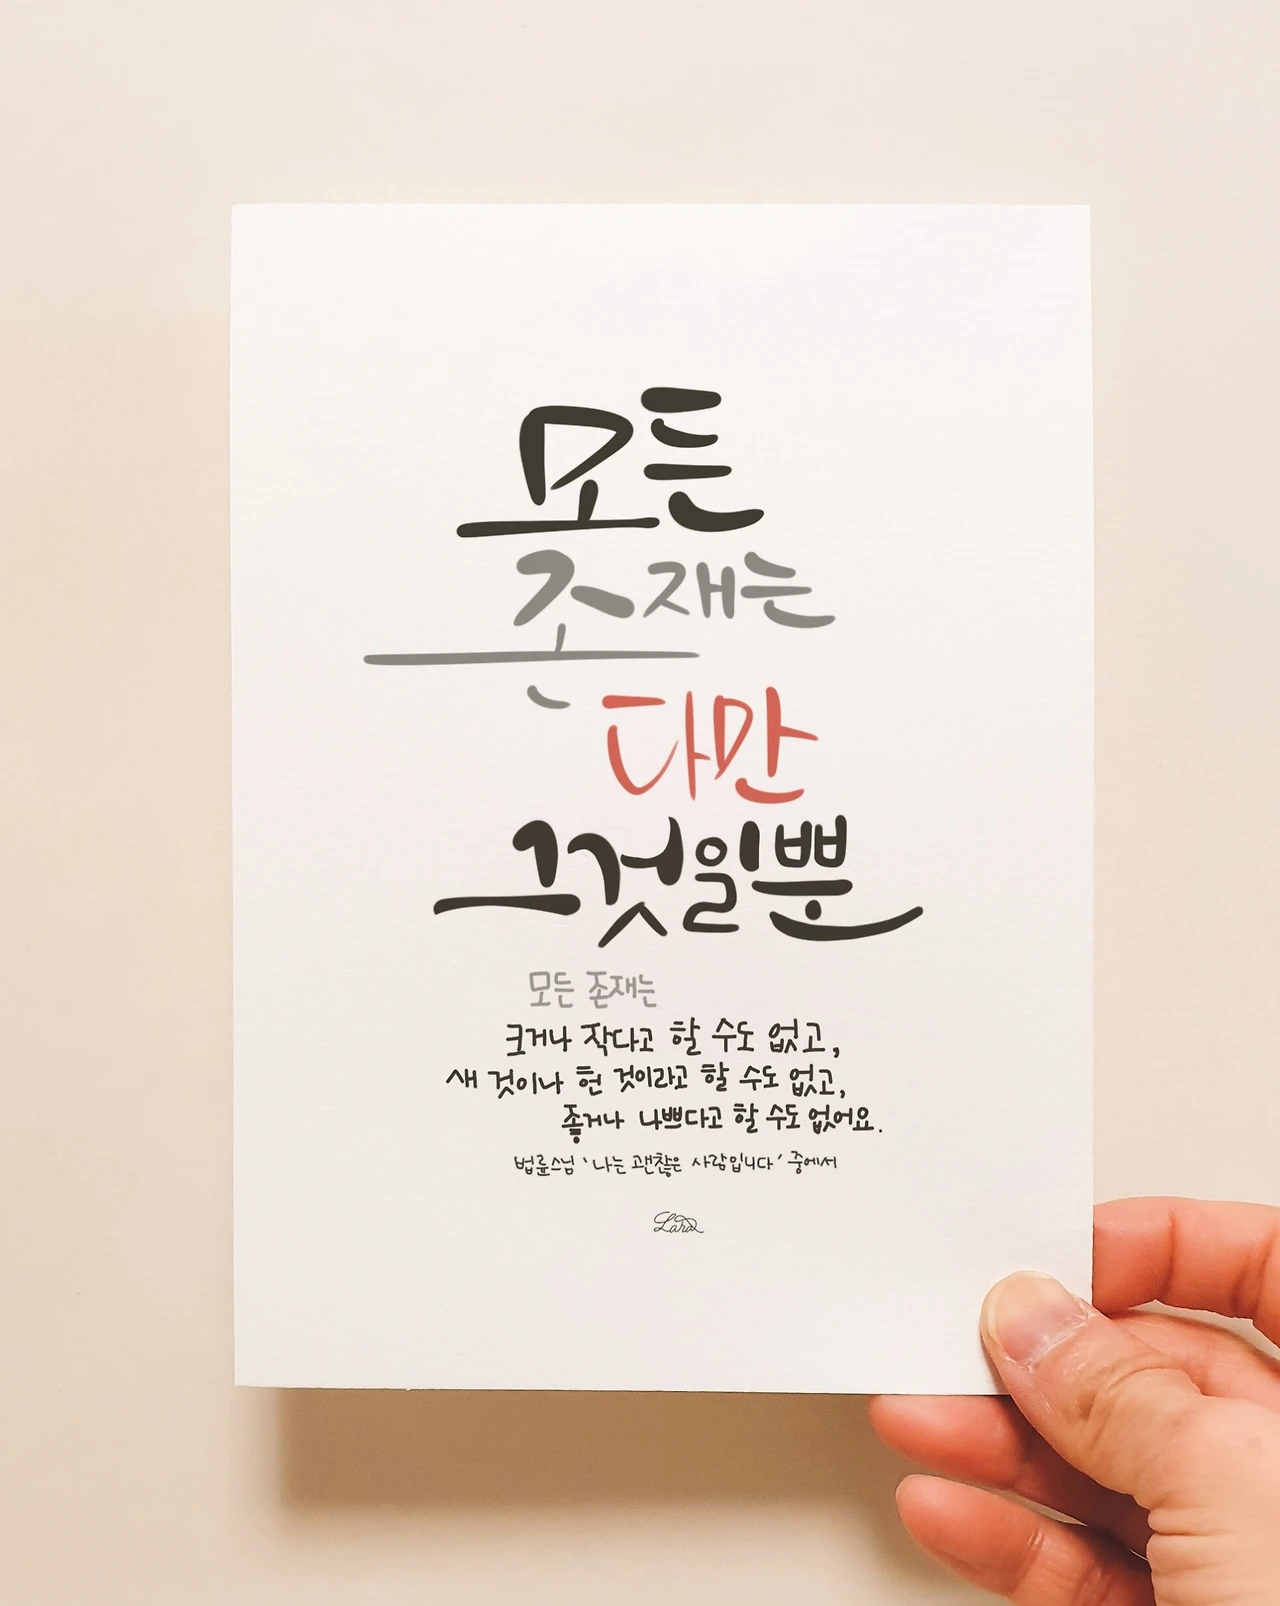 모든
존재는
다만
그것일뿐
모든 존재는
크거나 작다고 할 수도 없고,
새 것이나 헌 것이라고 할 수도 없고,
좋거나 나쁘다고 할 수도 없어요.
법륜스님 '나는 괜찮은 사람입니다' 중에서
Lara